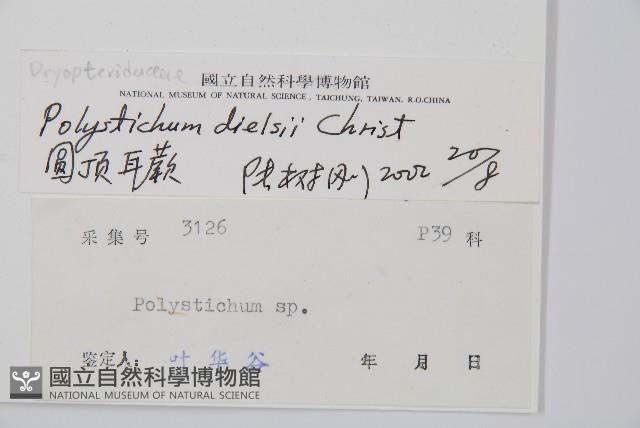 Dryopteridaceae
國立自然科學博物館
NATIONAL MUSEUM OF NATURAL SCIENCE, TAICHUNG, TAIWAN, R.O.CHINA
Polystichum dielsii Christ
圆顶耳蕨 陆树刚 2002 20/8
采集号 3126 P39 科
Polystichum sp.
鉴定人: 叶华谷 年 月 日
國立自然科學博物館
NATIONAL MUSEUM OF NATURAL SCIENCE